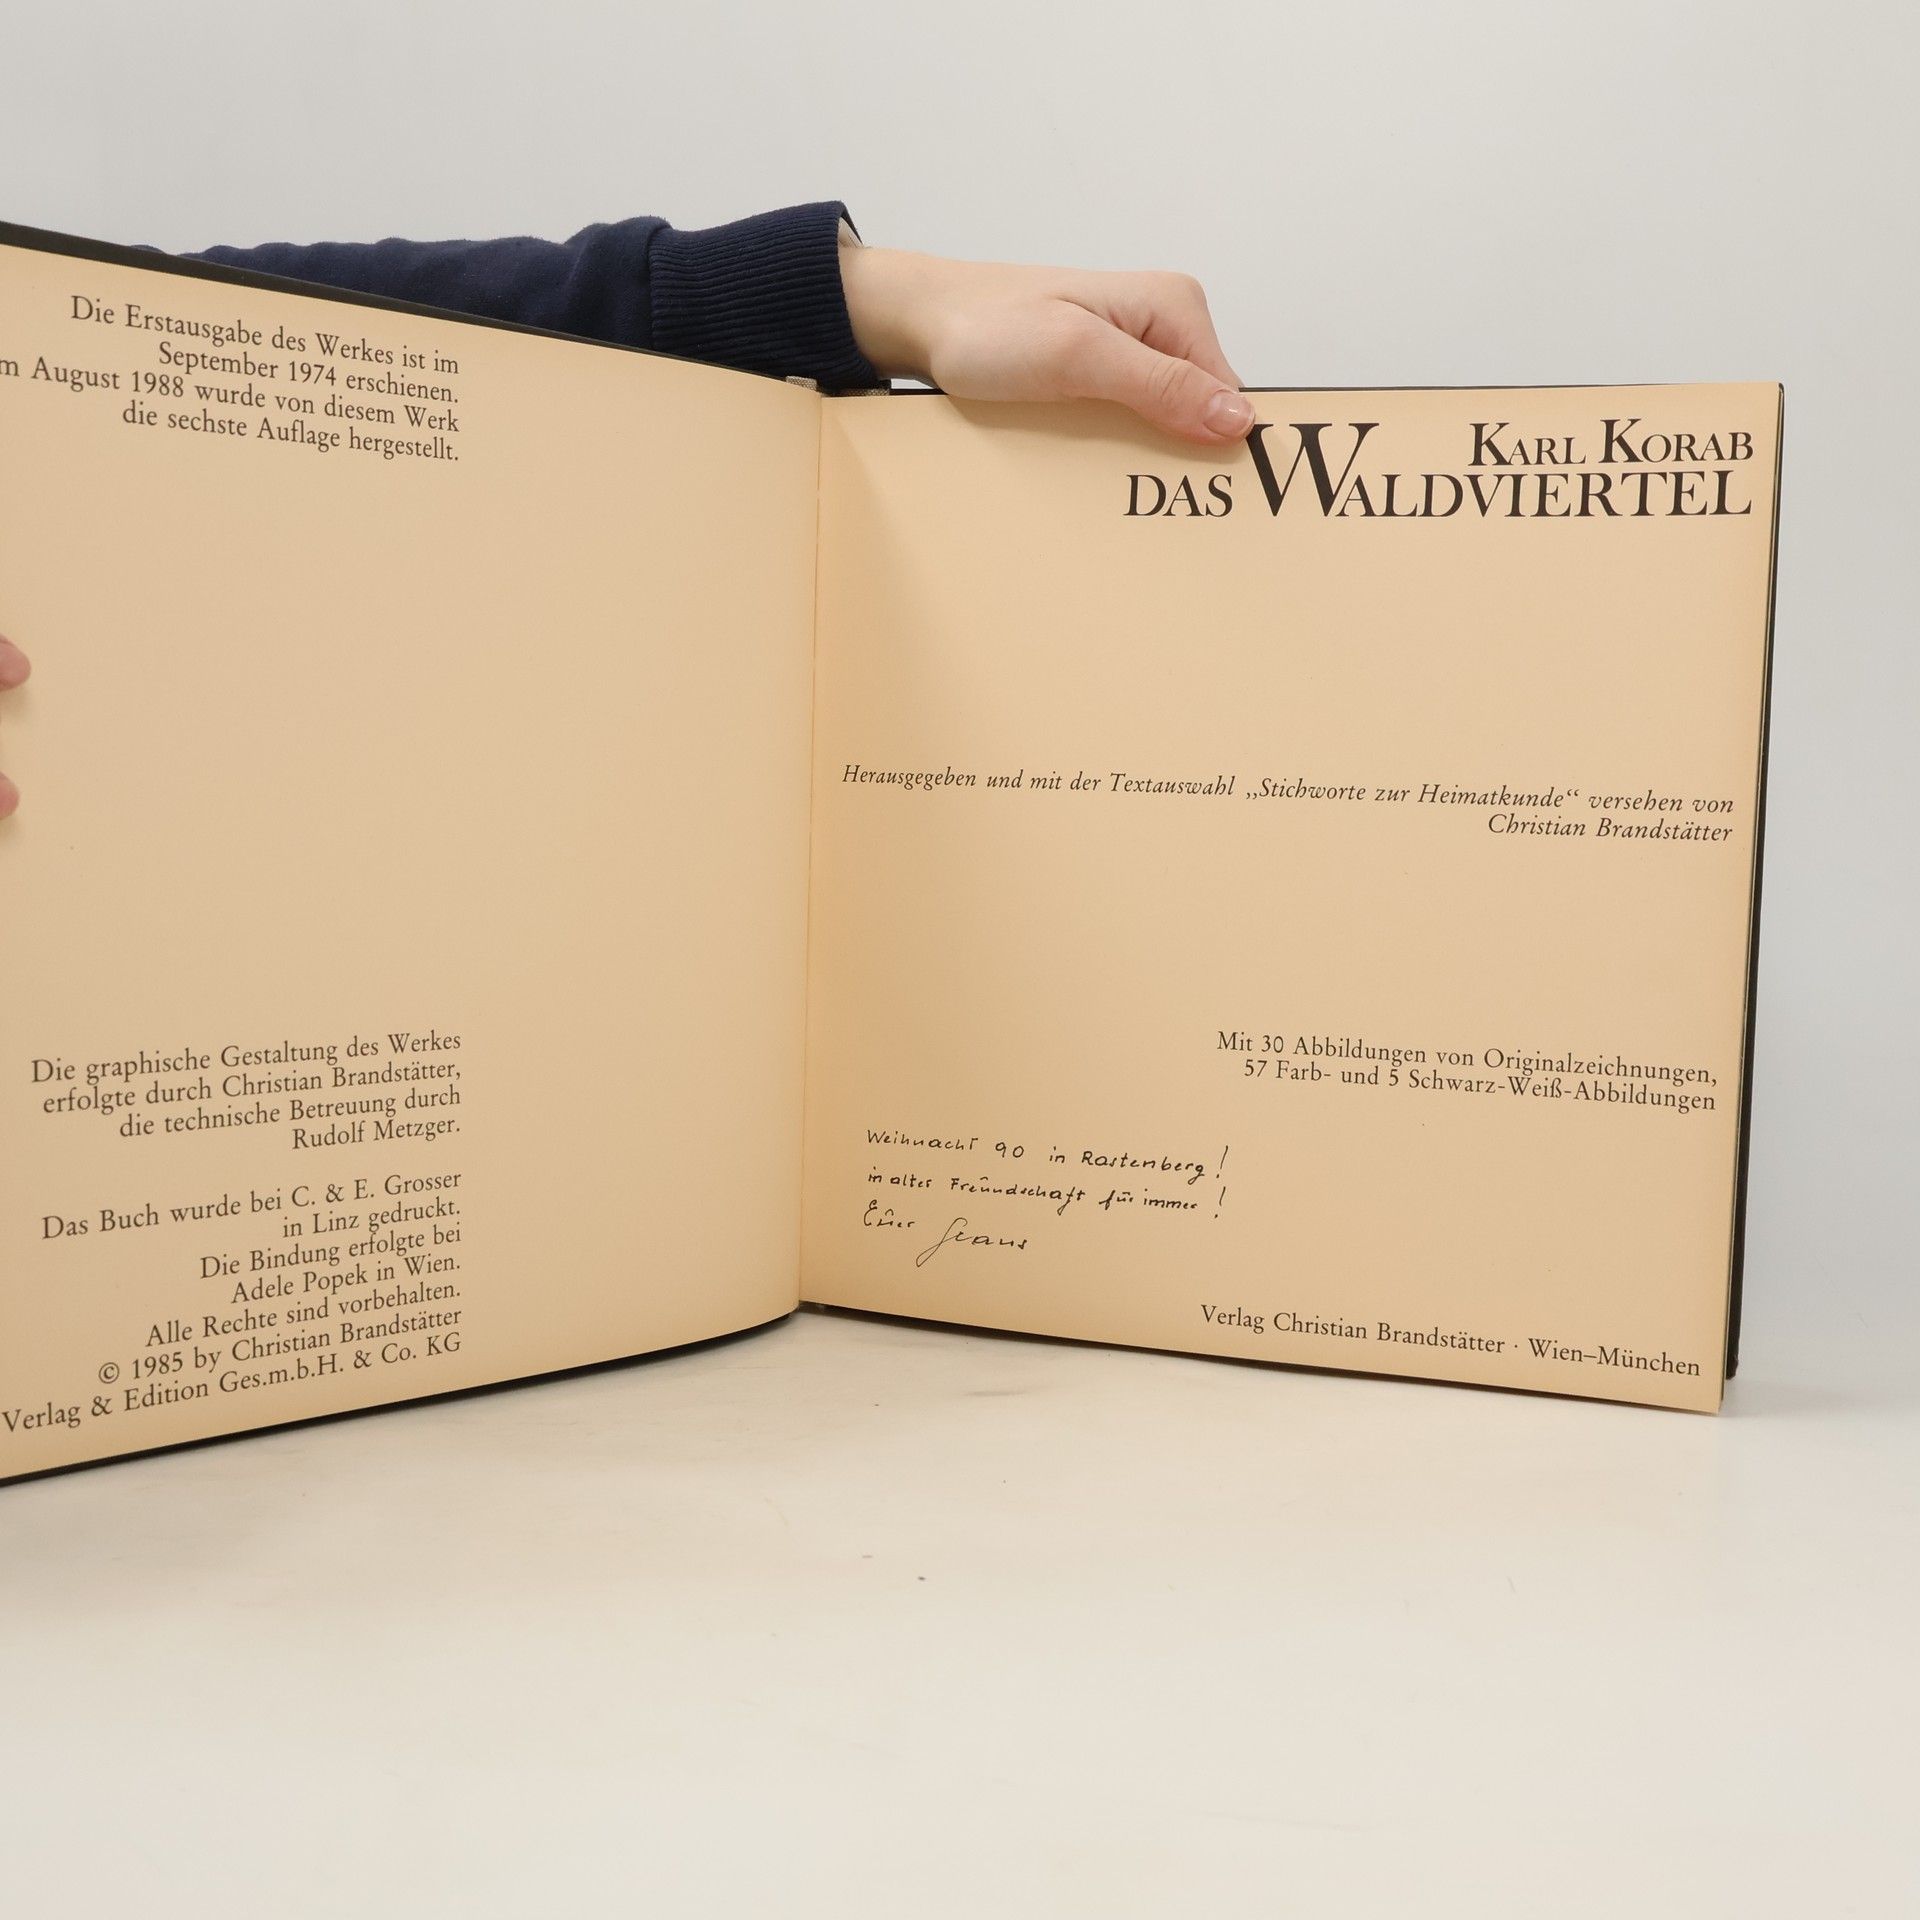 Die Erstausgabe des Werkes ist im
September 1974 erschienen.
m August 1988 wurde von diesem Werk
die sechste Auflage hergestellt.
Die graphische Gestaltung des Werkes
erfolgte durch Christian Brandstätter,
die technische Betreuung durch
Rudolf Metzger.
Das Buch wurde bei C. & E. Grosser
in Linz gedruckt.
Die Bindung erfolgte bei
Adele Popek in Wien.
Alle Rechte sind vorbehalten.
© 1985 by Christian Brandstätter
Verlag & Edition Ges.m.b.H. & Co. KG
KARL KORAB
DAS WALDVIERTEL
Herausgegeben und mit der Textauswahl „Stichworte zur Heimatkunde“ versehen von
Christian Brandstätter
Mit 30 Abbildungen von Originalzeichnungen,
57 Farb- und 5 Schwarz-Weiß-Abbildungen
Weihnacht 90 in Rastenberg!
in alter Freundschaft für immer!
Euer
Verlag Christian Brandstätter · Wien–München